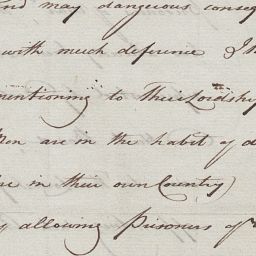 and may dangerous conseq
with much deference I h
mentioning to Their Lordship
Men are in the habit of d
are in their own Country)
allowing Prisoners of